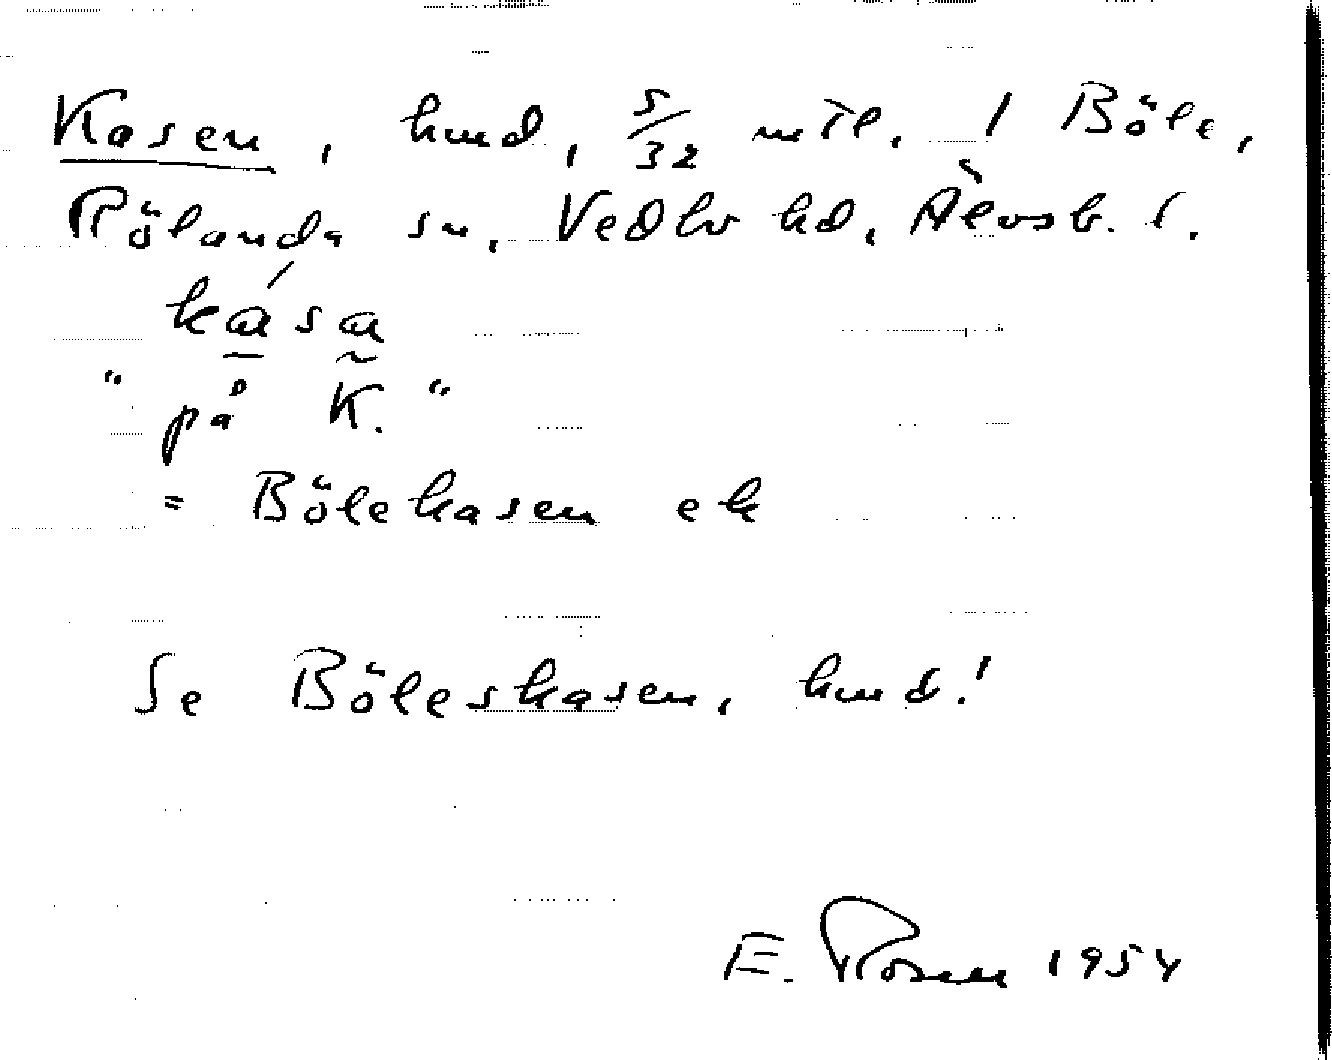 Kasen, hmd, 5/32 mtl. 1 Böle,
Rölanda sn, Vedbo hd, Älvsb. l.
kása
"på K."
= Bölekasen ek
Se Böleskasen, hmd!
E. Rosen 1954